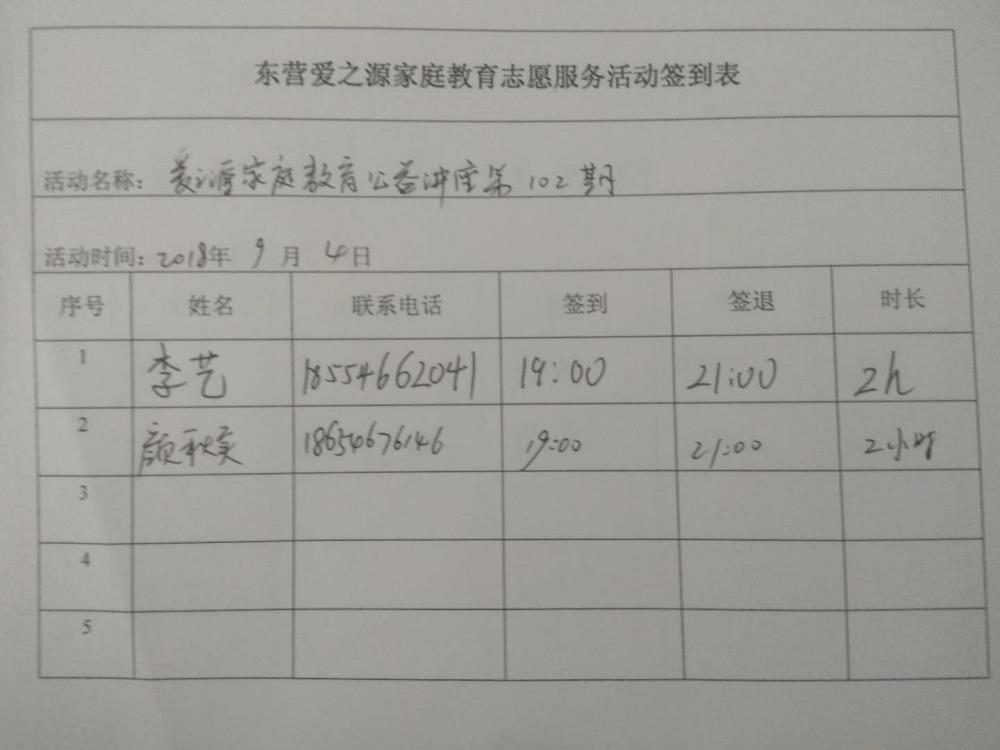 东营爱之源家庭教育志愿服务活动签到表
活动名称：爱之源家庭教育公益讲座第102期
活动时间：2018年9月4日
序号 姓名 联系电话 签到 签退 时长
1 李艺 18554662041 19:00 21:00 2h
2 颜秋 18654676146 19:00 21:00 2小时
3
4
5